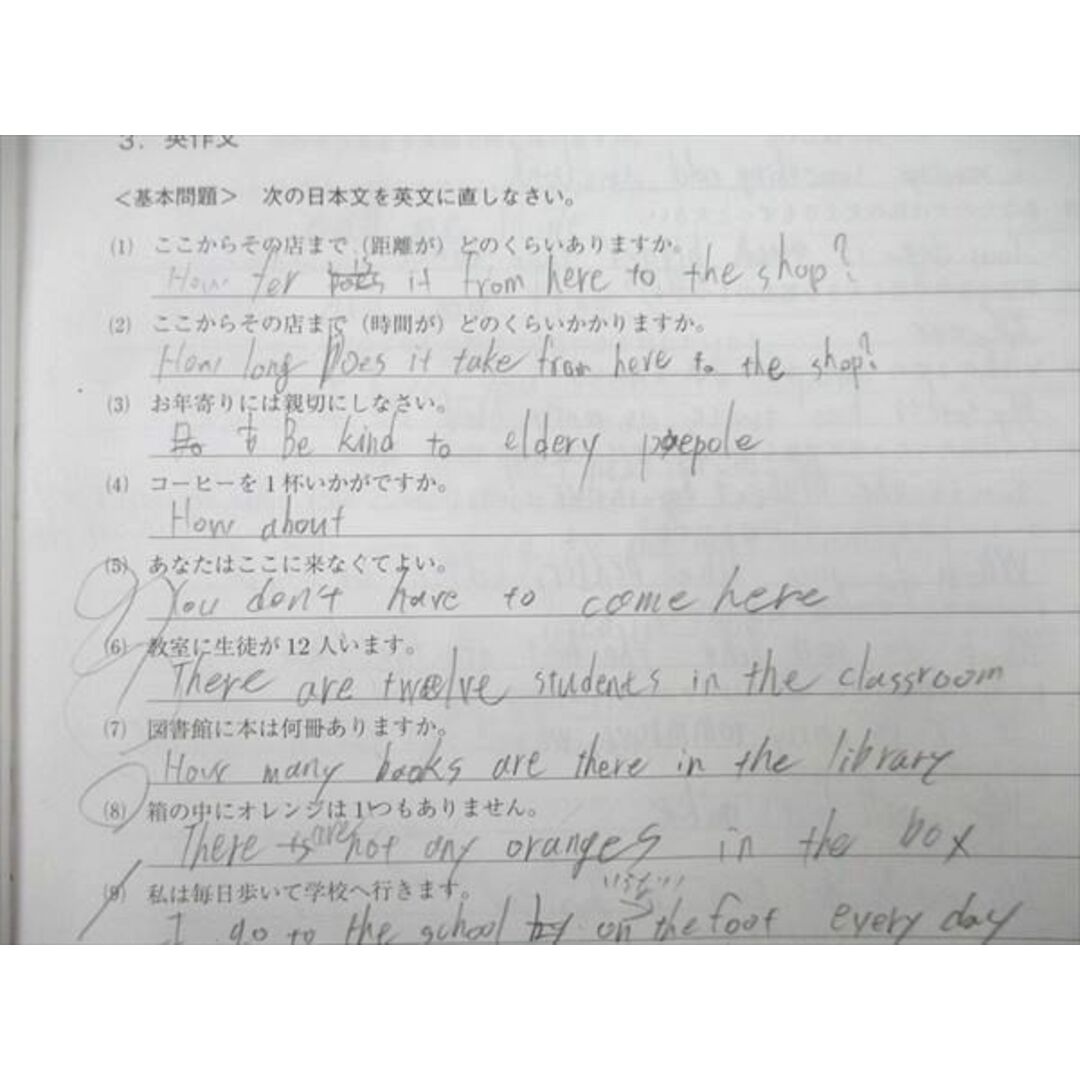 3. 英作文
＜基本問題＞ 次の日本文を英文に直しなさい。
(1) ここからその店まで（距離が）どのくらいありますか。
is
How fer does it from here to the shop?
(2) ここからその店まで（時間が）どのくらいかかりますか。
How long Does it take from here to the shop?
(3) お年寄りには親切にしなさい。
Be kind to eldery pepole
(4) コーヒーを1杯いかがですか。
How about
(5) あなたはここに来なくてよい。
You don't have to come here
(6) 教室に生徒が12人います。
There are twelve students in the classroom
(7) 図書館に本は何冊ありますか。
How many books are there in the library
(8) 箱の中にオレンジは1つもありません。
There is are not any oranges in the box
(9) 私は毎日歩いて学校へ行きます。
いらない
I go to the school by on the foot every day